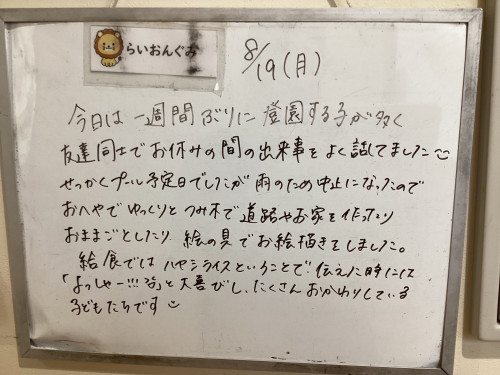 らいおんぐみ
8/19(月)
今日は一週間ぶりに登園する子が多く
友達同士でお休みの間の出来事をよく話してました
せっかくプール予定日でしたが雨のため中止になったので
おへやでゆっくりとつみ木で道路やお家を作ったり
おままごとしたり、絵の具でお絵描きをしました。
給食ではハヤシライスということで、伝えた時には
「よっしゃー!!!」と大喜びし、たくさんおかわりしている
子どもたちです